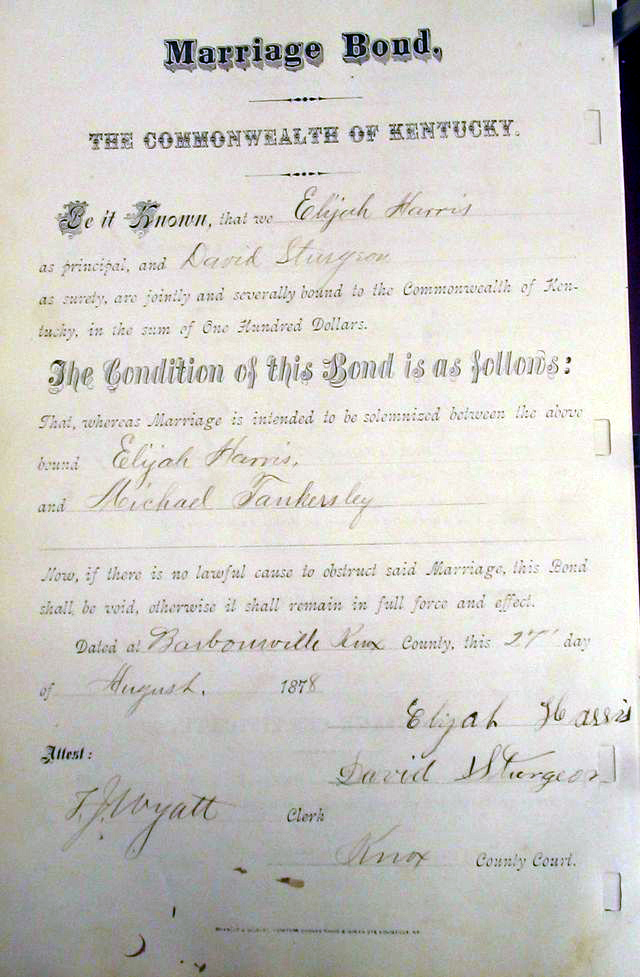 Marriage Bond,
THE COMMONWEALTH OF KENTUCKY.
Be it Known, that we Elijah Harris
as principal, and David Sturgeon
as surety, are jointly and severally bound to the Commonwealth of Ken-
tucky, in the sum of One Hundred Dollars.
The Condition of this Bond is as follows:
That, whereas Marriage is intended to be solemnized between the above
bound Elijah Harris,
and Michael Tankersley
Now, if there is no lawful cause to obstruct said Marriage, this Bond
shall be void, otherwise it shall remain in full force and effect.
Dated at Barbourville Knox County, this 27" day
of August, 1878
Elijah Harris
Attest:
David Sturgeon
T. J. Wyatt Clerk
Knox County Court.